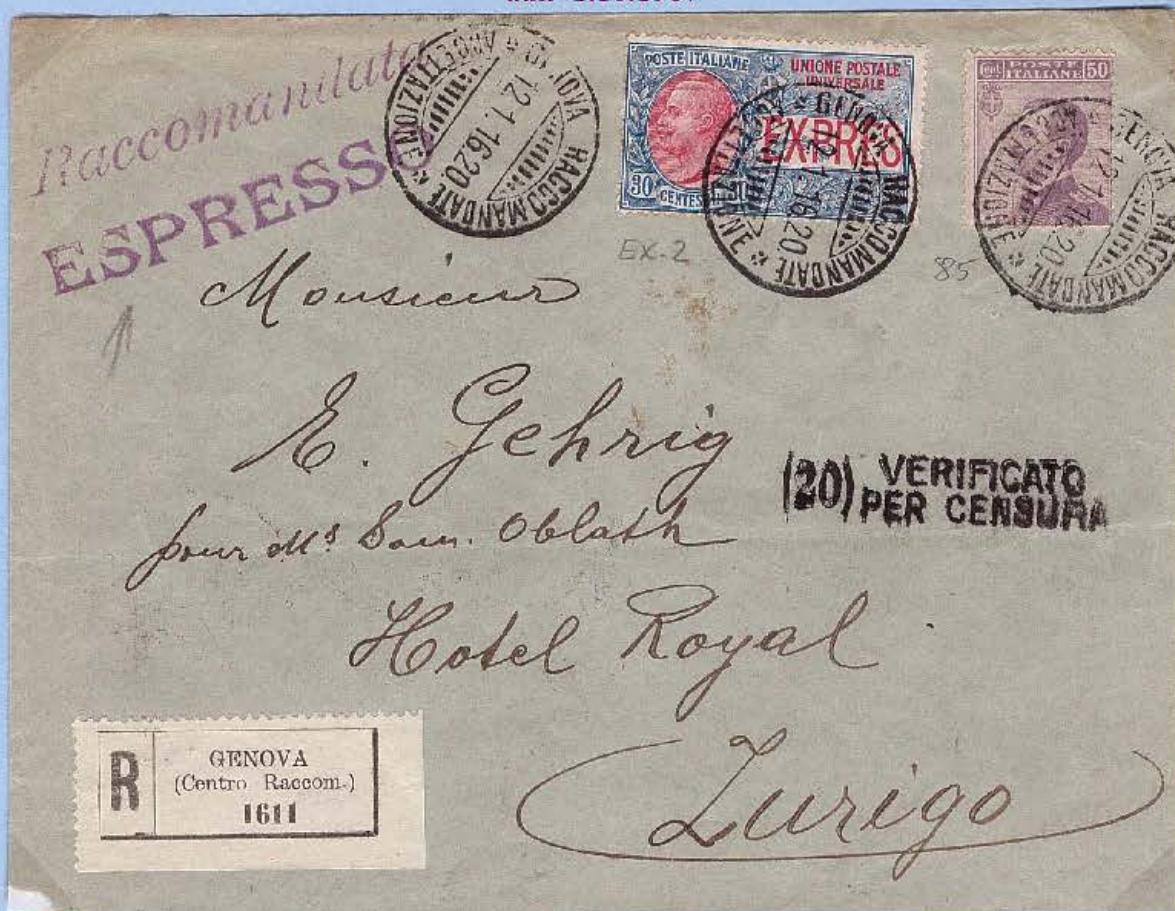 Raccomandata
ESPRESSO
GENOVA RACCOMANDATE
ACCETTAZIONE
12.1.16.20
POSTE ITALIANE
UNIONE POSTALE
UNIVERSALE
EXPRES
30 CENTES
GENOVA RACCOMANDATE
ACCETTAZIONE
12.1.16.20
POSTE
ITALIANE
50
GENOVA RACCOMANDATE
ACCETTAZIONE
12.1.16.20
EX-2
85
Monsieur
E. Gehrig
(20) VERIFICATO
PER CENSURA
pour Ms Sam. Oblath
Hotel Royal
R
GENOVA
(Centro Raccom.)
1611
Zurigo